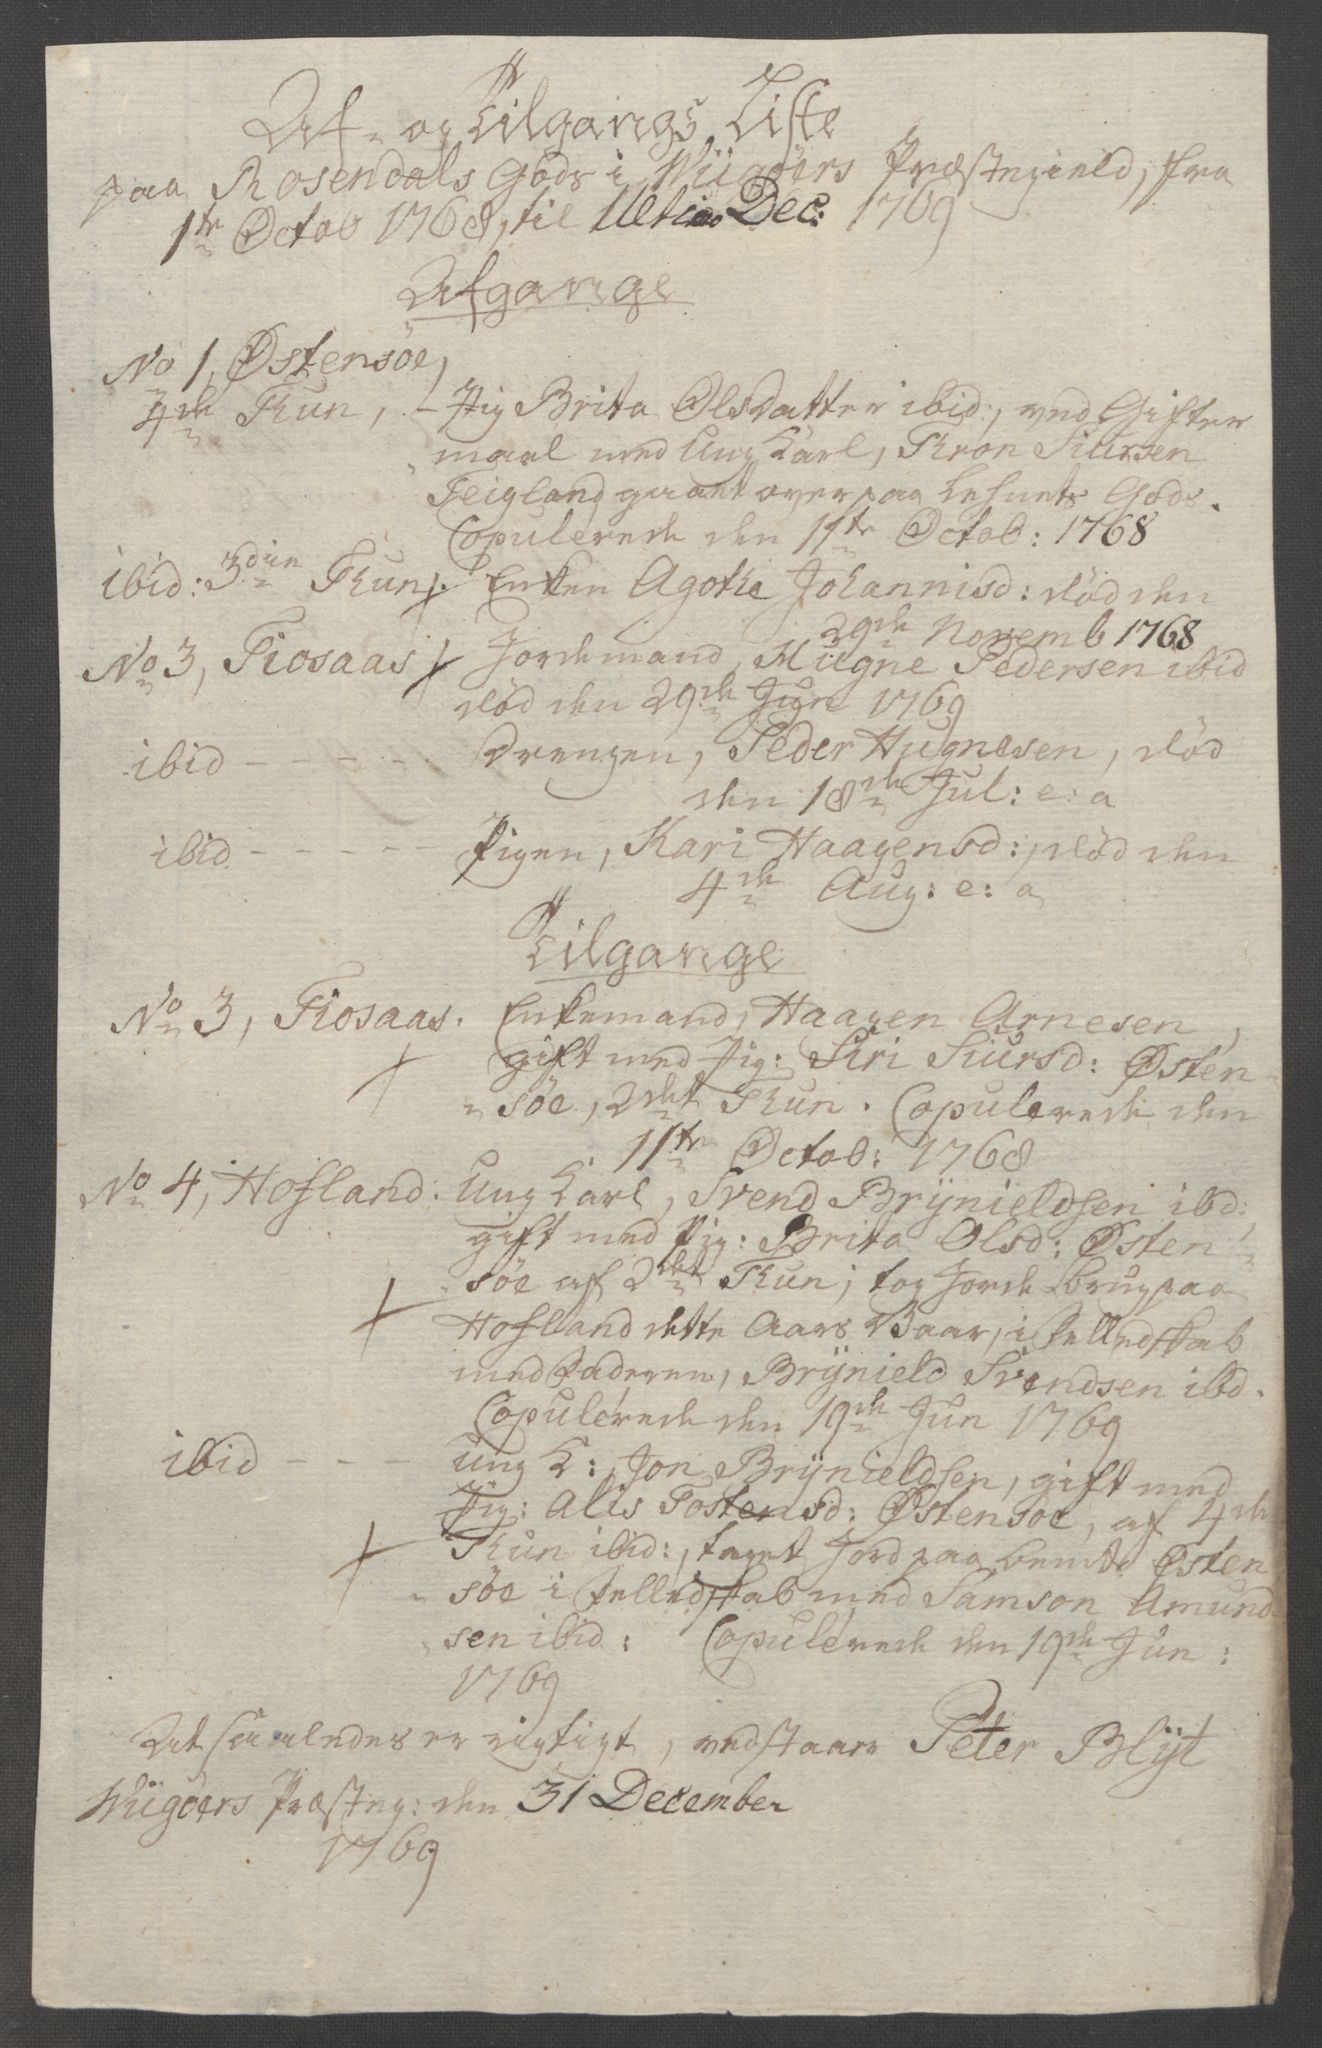 Af- og Tilgangs Liste
paa Rosendals Gods i Wiigöers Præstegield, fra
1te Octob 1768, til Ultimo Dec: 1769
Afgange
No 1, Østensöe,
4de Tun, - Pig Brita Olsdatter ibid:, ved Gifter
maal med Ung Karl, Tron Siursen
Teigland gaaet over paa Lehnets Gods.
Copulerede den 11te Octob: 1768
ibid: 3die Tun, Enken Agothe Johannisd: död den
29de Novemb 1768
No 3, Fiosaas Jordemand, Mugne Pedersen ibid
död den 29de Jun 1769
ibid - - - - - Drengen, Peder Hugnesen, död
den 18de Jul: e: a
ibid - - - - - Pigen, Kari Haagensd:, död den
4de Aug: e: a
Tilgange
No 3, Fiosaas. Enkemand, Haagen Arnesen,
gift med Pig: Siri Siursd: Østen-
söe, 2det Tun. Copulerede den
11te Octob: 1768
No 4, Hofland. Ung Karl, Svend Brÿnieldsen ibd:
gift med Pig: Brita Olsd: Østen-
söe af 2det Tun; tog Jorde brug paa
Hofland dette Aars Vaar, i Felledskab
med Faderen, Brÿnield Svendsen ibd.
Copulerede den 19de Jun 1769
ibid - - - Ung K: Jon Brÿnieldsen, gift med
Pig: Alis Tostensd: Østensöe, af 4de
Tun ibid:, taget Jord paa bemte Østen
söe i Felledskab med Samson Amund
sen ibid: Copulerede den 19de Jun:
1769
At saaledes er rigtigt, vedstaar Peter Blÿt
Wiigöers Præsteg: den 31 December
1769